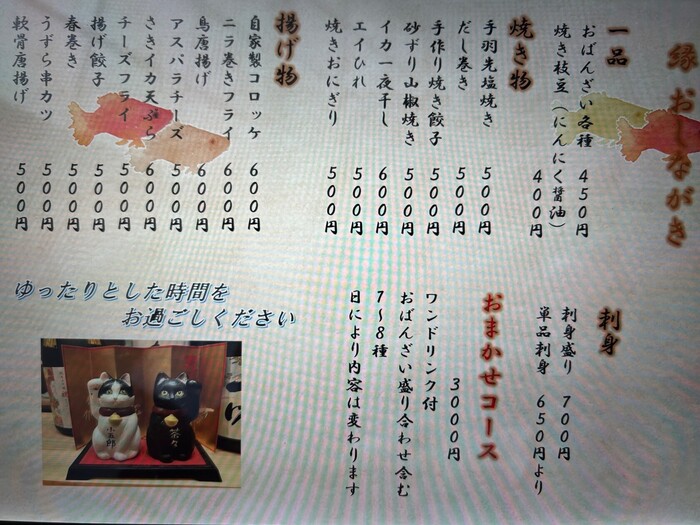 縁 おしながき
一品
おばんざい各種 450円
焼き枝豆(にんにく醤油) 400円
焼き物
手羽先塩焼き 500円
だし巻き 500円
手作り焼き餃子 500円
砂ずり山椒焼き 500円
イカ一夜干し 600円
エイひれ 500円
焼きおにぎり 500円
揚げ物
自家製コロッケ 600円
ニラ巻きフライ 600円
鳥唐揚げ 600円
アスパラチーズ 500円
さきイカ天ぷら 600円
チーズフライ 500円
揚げ餃子 500円
春巻き 500円
うずら串カツ 500円
軟骨唐揚げ 500円
刺身
刺身盛り 700円
単品刺身 650円より
おまかせコース
3000円
ワンドリンク付
おばんざい盛り合わせ含む
7〜8種
日により内容は変わります
ゆったりとした時間を
お過ごしください
茶々